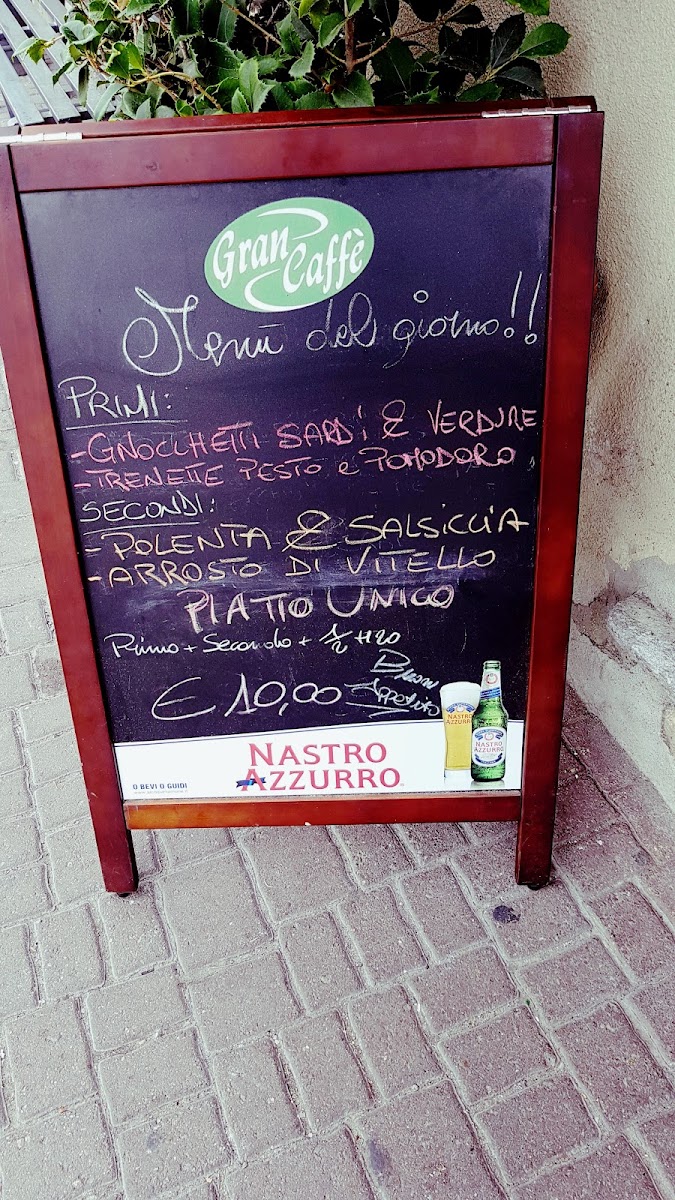 Gran Caffè
Menù del giorno!!
PRIMI:
-GNOCCHETTI SARDI & VERDURE
-TRENETTE PESTO e POMODORO
SECONDI:
-POLENTA & SALSICCIA
-ARROSTO DI VITELLO
PIATTO UNICO
Primo + Secondo + 1/2 H20
€ 10,00
Buon
Appetito
NASTRO
AZZURRO
NASTRO
AZZURRO
NASTRO
AZZURRO
O BEVI O GUIDI